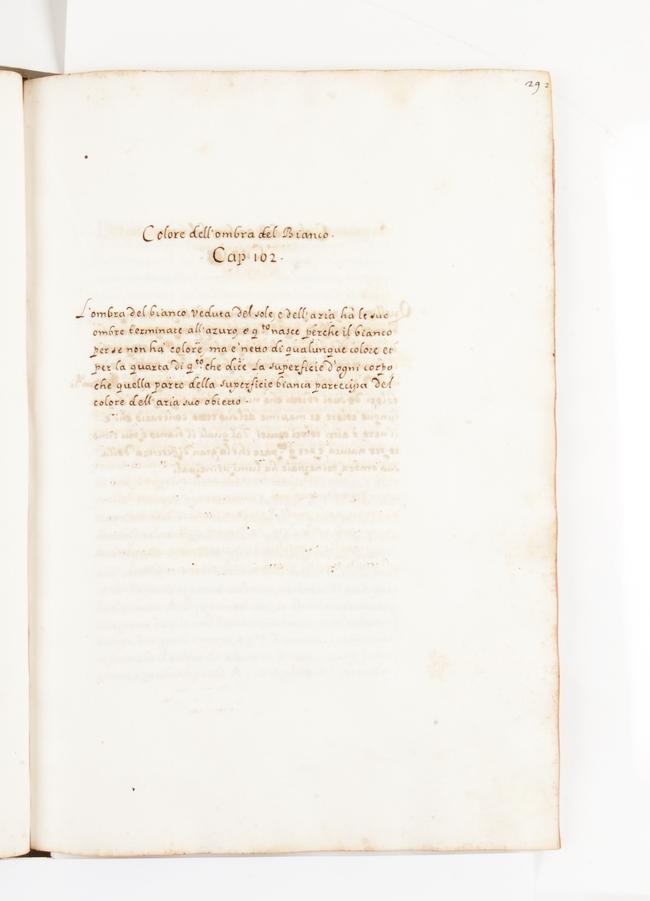 292
Colore dell'ombra del Bianco.
Cap 102.
L'ombra del bianco veduta del sole, e dell'aria ha le sue
ombre terminate all'azuro, e q.to nasce perche il bianco
per se non ha colore, ma e netto di qualunque colore et
per la quarta di q.to che dice La superficie d'ogni corpo
che quella parte della superficie bianca partecipa del
colore dell'aria suo obietto.